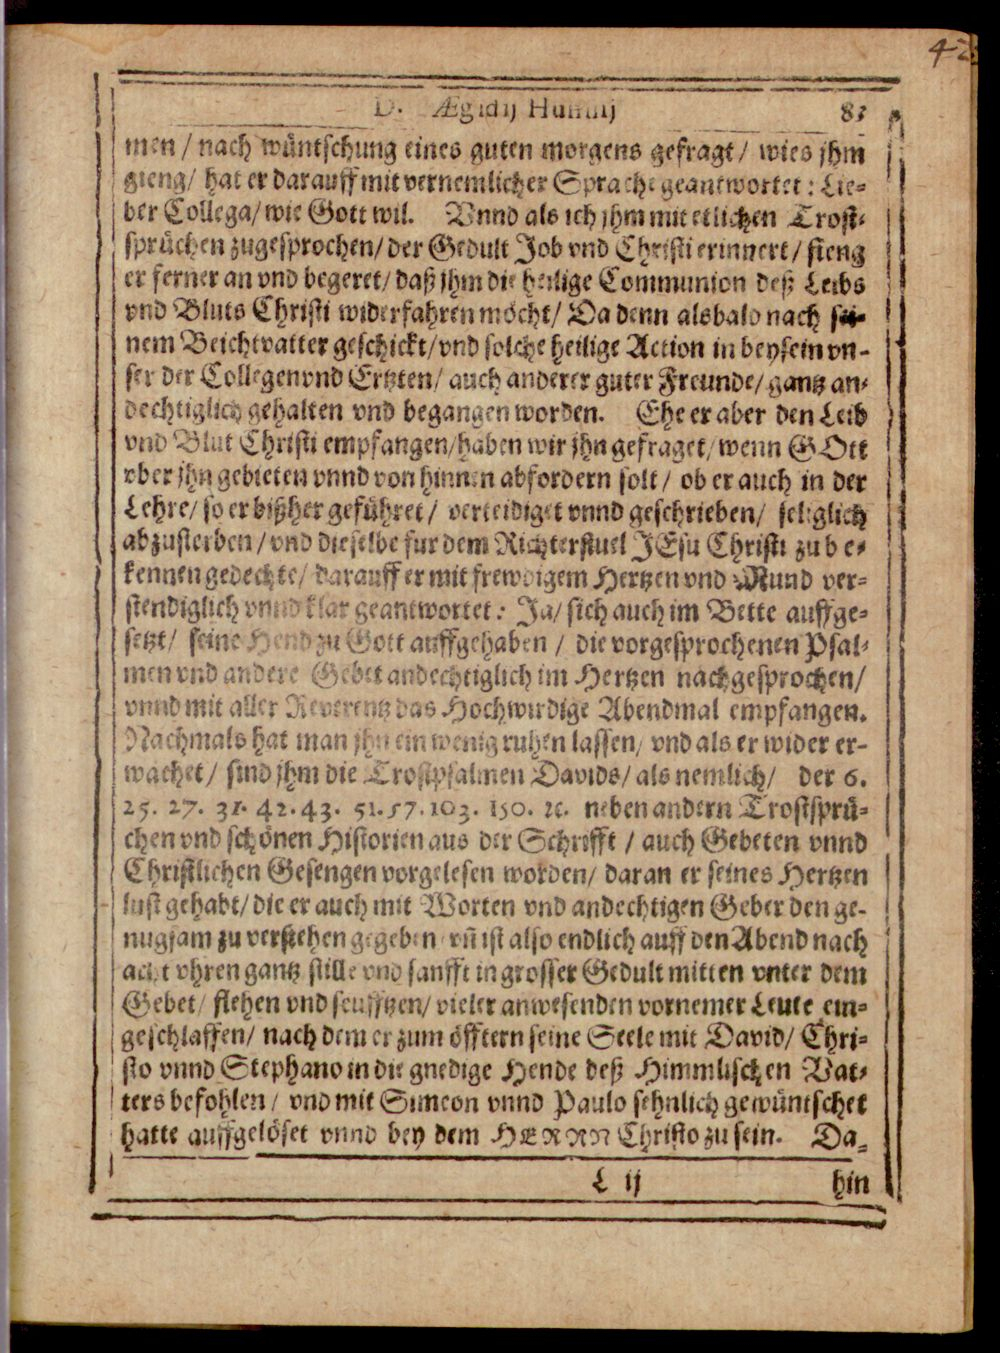 42
D. Ægidij Hunnij 83
men / nach wüntschung eines guten morgens gefragt / wies jhm
gieng / hat er darauff mit vernemlicher Sprache geantwortet: Lie-
ber Collega / wie Gott wil. Vnnd als ich jhm mit etlichen Trost-
sprüchen zugesprochen / der Gedult Job vnd Christi erinnert / fieng
er ferner an vnd begeret / daß jhm die heilige Communion deß Leibs
vnd Bluts Christi widerfahren möcht / Da denn alsbald nach sei-
nem Beichtvatter geschickt / vnd solche heilige Action in beysein vn-
ser der Collegen vnd Ertzten / auch anderer guter Freunde / gantz an-
dechtiglich gehalten vnd begangen worden. Ehe er aber den Leib
vnd Blut Christi empfangen / haben wir jhn gefraget / wenn GOtt
vber jhn gebieten vnnd von hinnen abfordern solt / ob er auch in der
Lehre / so er bißher geführet / verteidiget vnnd geschrieben / seliglich
abzusterben / vnd dieselbe fur dem Richterstuel JEsu Christi zu be-
kennen gedechte / darauff er mit frewdigem Hertzen vnd Mund ver-
stendiglich vnnd klar geantwortet: Ja / sich auch im Bette auffge-
setzt / seine Hend zu Gott auffgehaben / die vorgesprochenen Psal-
men vnd andere Gebet andechtiglich im Hertzen nachgesprochen /
vnnd mit aller Reverentz das Hochwirdige Abendmal empfangen.
Nachmals hat man jhn ein wenig ruhen lassen / vnd als er wider er-
wachet / sind jhm die Trostpsalmen Davids / als nemlich / der 6.
25. 27. 31. 42. 43. 51. 57. 103. 130. ꝛc. neben andern Trostsprü-
chen vnd schönen Historien aus der Schrifft / auch Gebeten vnnd
Christlichen Gesengen vorgelesen worden / daran er seines Hertzen
lust gehabt / die er auch mit Worten vnd andechtigen Geber den ge-
nugsam zu verstehen gegeben vñ ist also endlich auff den Abend nach
acht vhren gantz stille vnd sanfft in grosser Gedult mitten vnter dem
Gebet / flehen vnd seufftzen / vieler anwesenden vornemer Leute ein-
geschlaffen / nach dem er zum öfftern seine Seele mit David / Chri-
sto vnnd Stephano in die gnedige Hende deß Himmlischen Vat-
ters befohlen / vnd mit Simeon vnnd Paulo sehnlich gewüntschet
hatte auffgelöset vnnd bey dem HERRN Christo zu sein. Da-
L ij hin